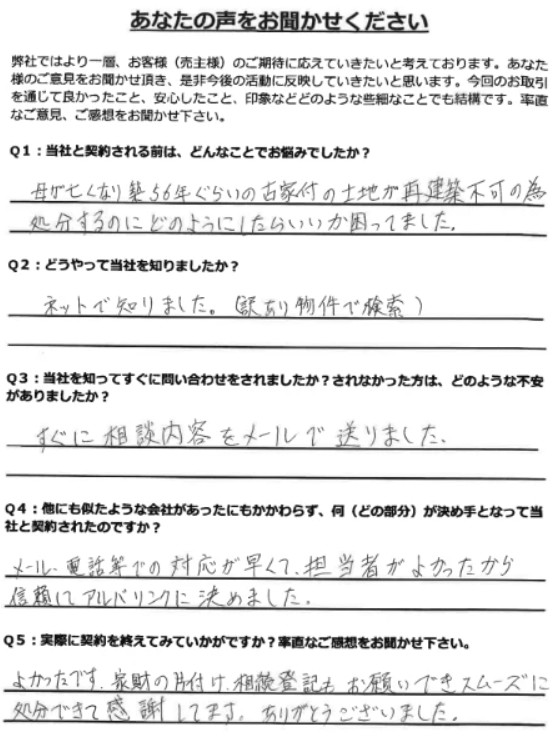 あなたの声をお聞かせください
弊社ではより一層、お客様（売主様）のご期待に応えていきたいと考えております。あなた
様のご意見をお聞かせ頂き、是非今後の活動に反映していきたいと思います。今回のお取引
を通じて良かったこと、安心したこと、印象などどのような些細なことでも結構です。率直
なご意見、ご感想をお聞かせ下さい。
Q1：当社と契約される前は、どんなことでお悩みでしたか？
母が亡くなり築56年ぐらいの古家付の土地が再建築不可の為
処分するのにどのようにしたらいいか困ってました。
Q2：どうやって当社を知りましたか？
ネットで知りました。（訳あり物件で検索）
Q3：当社を知ってすぐに問い合わせをされましたか？されなかった方は、どのような不安
がありましたか？
すぐに相談内容をメールで送りました。
Q4：他にも似たような会社があったにもかかわらず、何（どの部分）が決め手となって当
社と契約されたのですか？
メール、電話等での対応が早くて、担当者がよかったから
信頼してアルバリンクに決めました。
Q5：実際に契約を終えてみていかがですか？率直なご感想をお聞かせ下さい。
よかったです。家財の片付け、相続登記もお願いできスムーズに
処分できて感謝してます。ありがとうございました。